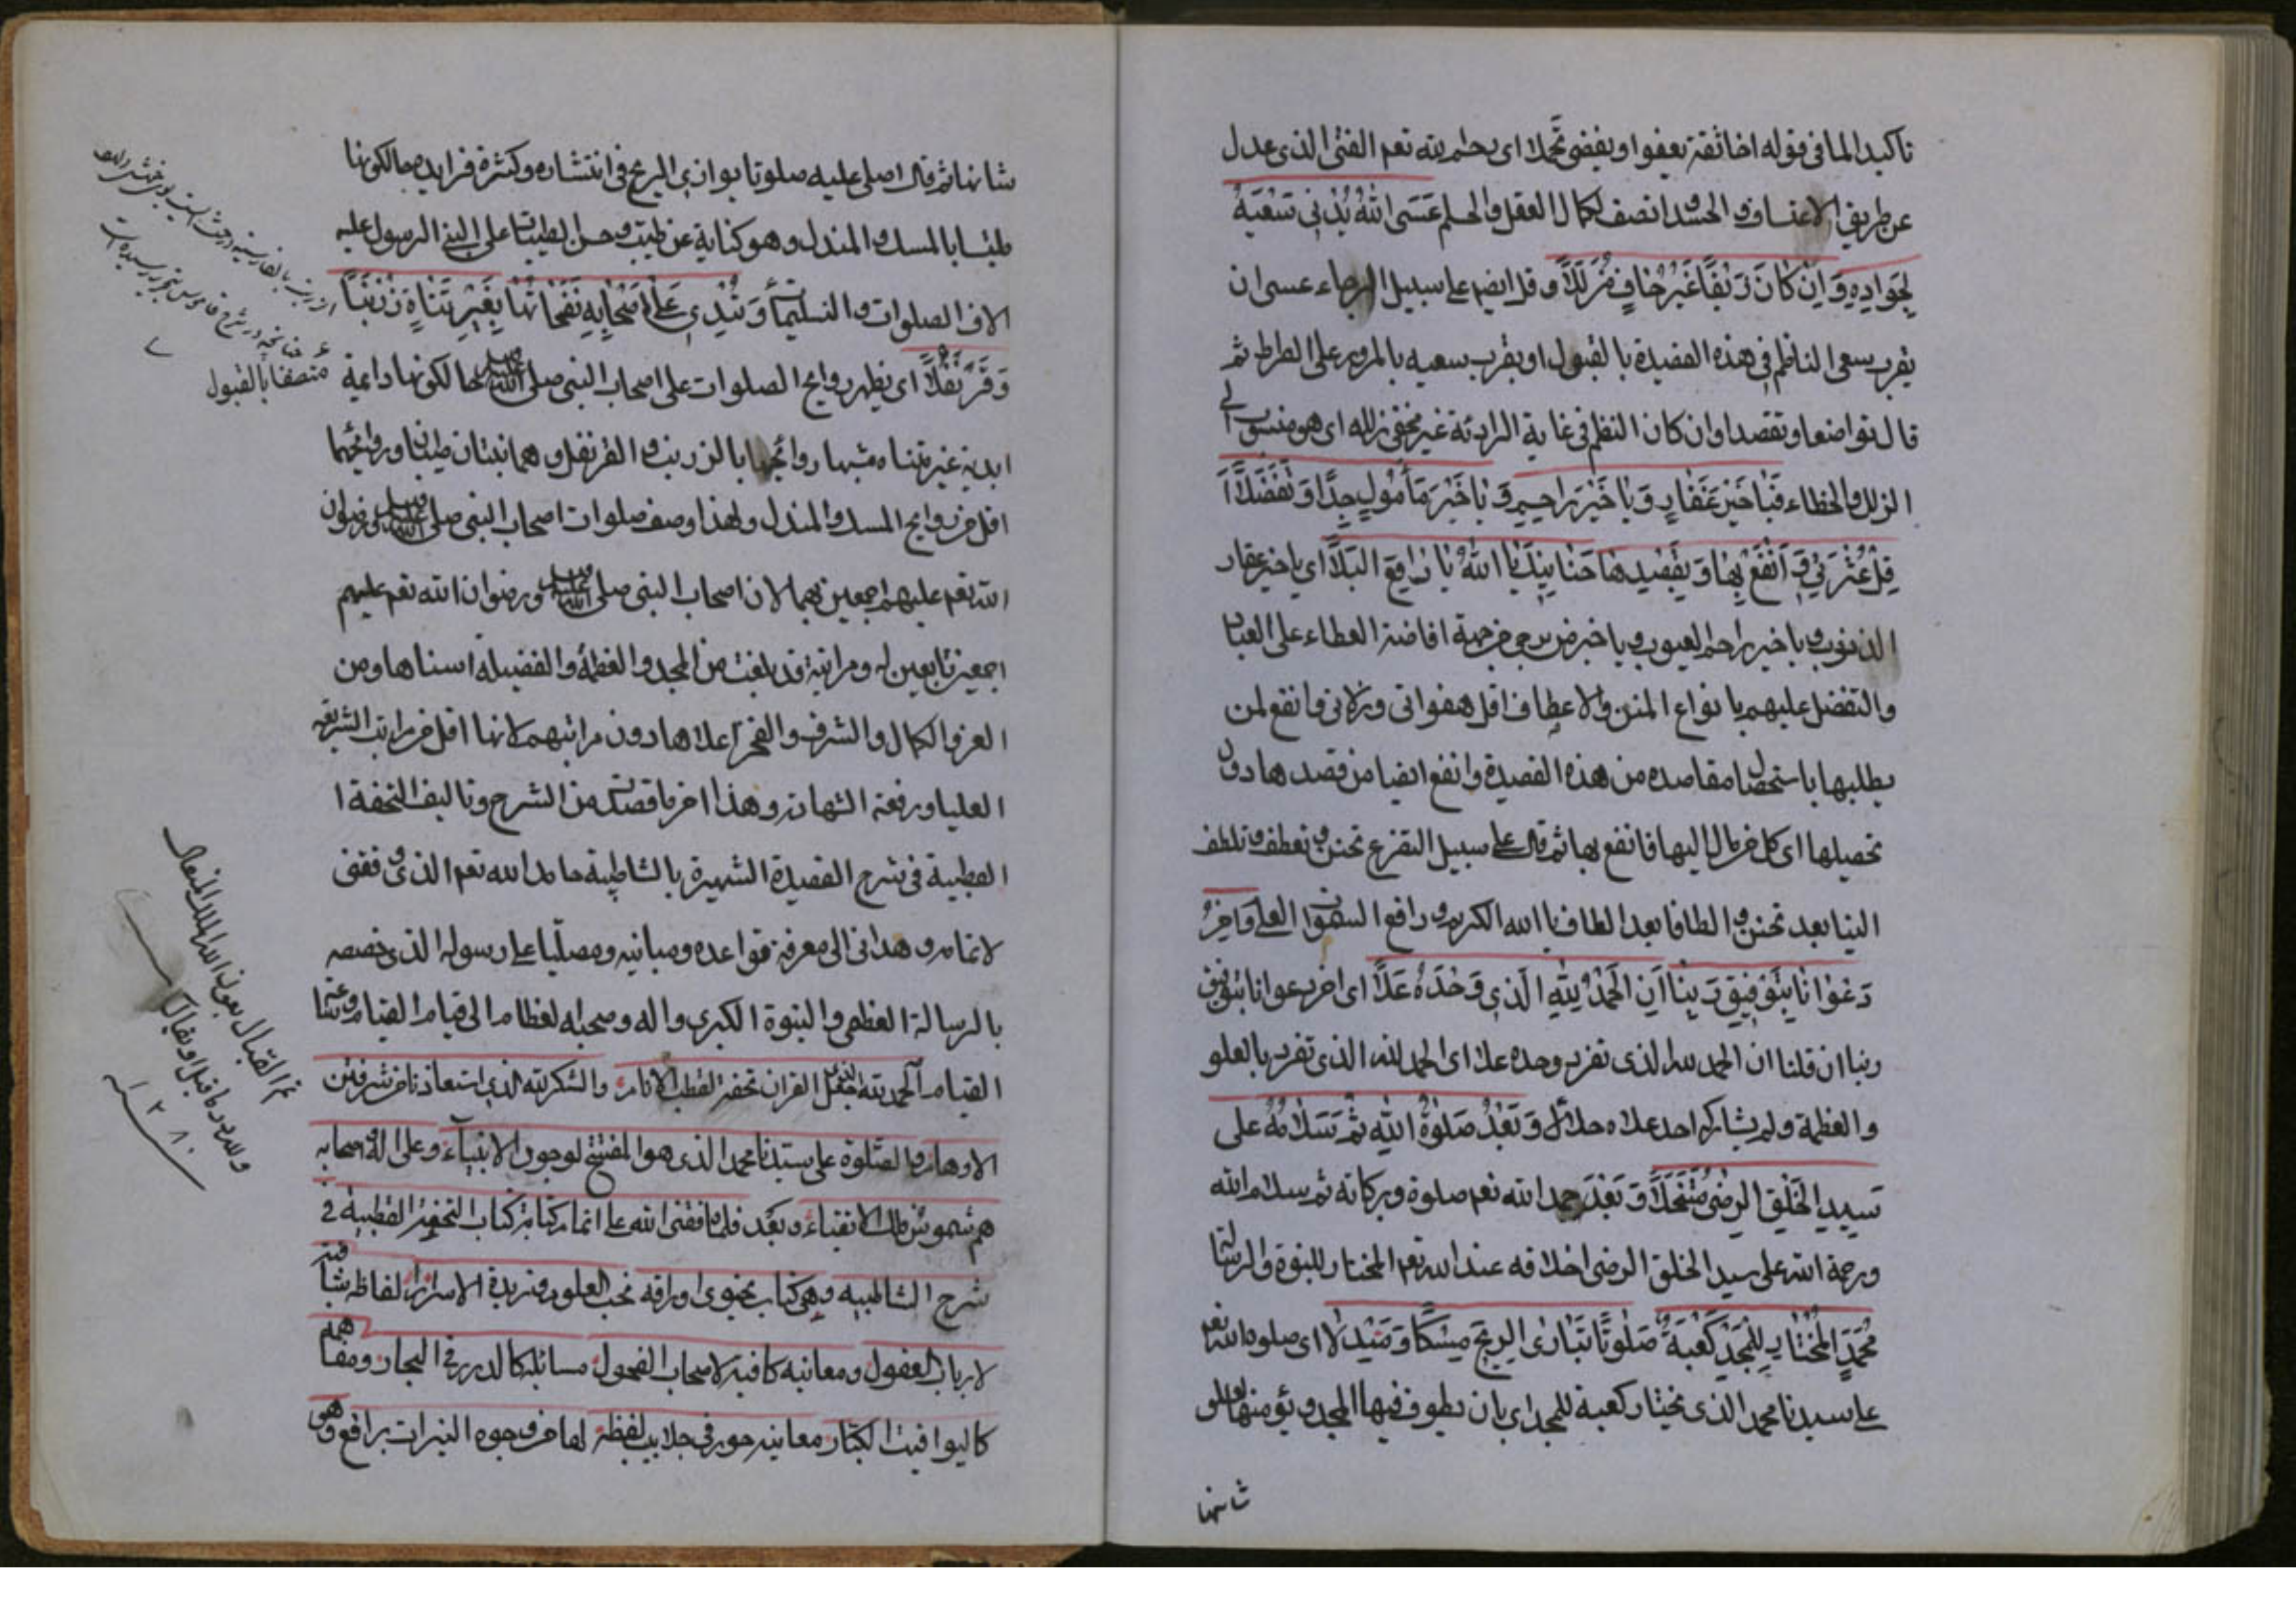 تاكيدا لما فى قوله اخا ثقة يعفوا ويغضى تجملا اى يحلم لله نعم الفتى الذى عدل
عن طريق الاعتساف والحسد انصف لكمال العقل والحلم عَسَى اللهُ يُدْنِى سَعْيَهُ
بِجَوَازِهِ وَاِنْ كَانَ زَيْفًا غَيْرَ خَافٍ مُزَلَّلًا وقل ايضا على سبيل الرجاء عسى ان
يقرب سعى الناظم فى هذه القصيدة بالقبول او يقرب سعيه بالمرور على الصراط ثم
قال تواضعا وان كان النظم فى غاية غير مخفى زلله اى هو منسوب الى
الزلل والخطاء فَيَا خَيْرَ غَفَّارٍ وَيَا خَيْرَ رَاحِمٍ وَيَا خَيْرَ مَأْمُولٍ جِدًّا وَتَفَضُّلًا
اَقِلْ عَثْرَتِى وَانْفَعْ بِهَا وَبِقَصْدِهَا حَنَانَيْكَ يَا اَللهُ يَا رَافِعَ الْعُلَا اى يا خير غفار
الذنوب ويا خير راحم العيوب ويا خير من يرجى من جهة افاضة العطاء على العباد
والتفضل عليهم بانواع المنن والاعطاف اقل هفواتى وزلاتى وانفع لمن
يطلبها باستحصال مقاصده من هذه القصيدة وانفع ايضا من قصدها دون
تحصيلها اى كل من مال اليها فانفع بها ثم قال على سبيل التضرع تحنن وتعطف وتلطف
الينا بعد تحنن والطافا بعد الطاف يا الله الكريم ورافع السموات العلى وَاٰخِرُ
دَعْوَانَا بِتَوْفِيقِ رَبِّنَا اَنِ الْحَمْدُ لِلّٰهِ الَّذِى وَحْدَهُ عَلَا اى اخر دعوانا بتوفيق
ربنا ان قلنا ان الحمد لله الذى تفرد وحده علا اى الحمد لله الذى تفرد بالعلو
والعظمة ولم يشاركه احد علاه وَبَعْدُ صَلٰوةُ اللهِ ثُمَّ سَلَامُهُ عَلَى
سَيِّدِ الْخَلْقِ الرِّضَى مُتَنَخَّلًا وَبَعْدَ حمد الله نعم صلوة وبركاته ثم سلام الله
ورحمة الله على سيد الخلق الرضى اخلاقه عند الله نعم المختار للنبوة والرسالة
مُحَمَّدٍ الْمُخْتَارِ لِلْمَجْدِ كَعْبَةً صَلٰوةً تُبَارِى الرِّيحَ مِسْكًا وَمَنْدَلًا اى صلوة الله نعم
على سيدنا محمد الذى يختار كعبة للمجد اى بان يطوف فيها المجد ويؤم منها لعلو
شانها
شانها ثم قال اصلى عليه صلوة توازى الريح فى انتشاره وكثرة فرايده حالكونها
طيبا بالمسك والمندل وهو كناية عن طيب وحسن الطيبات على النبى الرسول عليه
الاف الصلوات والتسليمات وَتُبْدِى عَلٰى اَصْحَابِهِ نَفَحَاتُهَا بِغَيْرِ تَنَاهٍ زَرْنَبًا
وَقَرَنْفُلًا اى يظهر روايح الصلوات على اصحاب النبى صلى الله عليه وسلم حالكونها دائمة
ابدية غير متناه مشبها روائحها بالزرنب والقرنفل وهما نبتان طيبان وروائحهما
اقل من روايح المسك والمندل ولهذا وصف صلوات اصحاب النبى صلى الله عليه وسلم ورضوان
الله نعم عليهم اجمعين بهما لان اصحاب النبى صلى الله عليه وسلم ورضوان الله نعم عليهم
اجمعين تابعين له ومراتبه قد بلغت من المجد والعظمة والفضيلة اسناها ومن
العز والكمال والشرف والفخر اعلاها دون مراتبهم لانها اقل من مراتب الشريفة
العليا ورفعة الشهادة وهذا اخر ما قصدت من الشرح وتاليف التحفة ا
لقطبية فى شرح القصيدة الشهيرة بالشاطبية حامدا لله نعم الذى وفقنى
لاتمامه وهدانى الى معرفة قواعده ومبانيه ومصليا على رسوله الذى خصصه
بالرسالة العظمى والنبوة الكبرى واله وصحبه العظام الى قيام القيام
القيام الحمد لله القران تحفة لقطب الانام والشكر لله الذى
الاوهام والصلوة على سيدنا محمد الذى هو المفتتح لوجود الانبياء وعلى اله واصحابه
هم شموس فلك الاتقياء وبعد فلما وفقنى الله على اتمام كتابة كتاب التحفة القطبية فى
شرح الشاطبيه وهى كتاب يحتوى اوراقه نخب العلوم وزبدة الاسرار الفاظه شافية
لارباب العقول ومعانيه كافية لاصحاب الفحول مسائله كالدرر فى البحار ومفاهمه
كاليواقيت الكبار معانيه حور فى جلابيب لفظه لها من وجوه النيرات براقع وهى
متصفا بالقبول
تم القتال بعون الله الملك المتعال
ولله در ما قيل او يقال
١٢٨٠